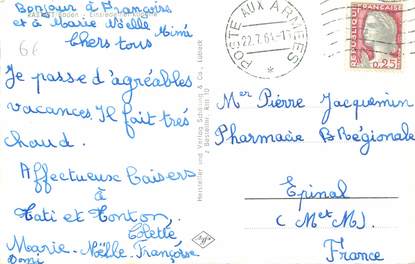 Bonjour à Françoise
et à Marie Noëlle Mimi
Chers tous
66
Je passe d'agréables
vacances. Il fait très
chaud.
Affectueux baisers
à
Tati et Tonton,
Colette
Marie-Noëlle-Françoise
Domi
Hersteller und Verlag Schöning & Co., Lübeck
Agfa
POSTE AUX ARMEES
22.7.61-17
*
REPUBLIQUE FRANÇAISE
0,25
Mer Pierre Jacquemin
Pharmacie B Régionale
Epinal
(Met M).
France